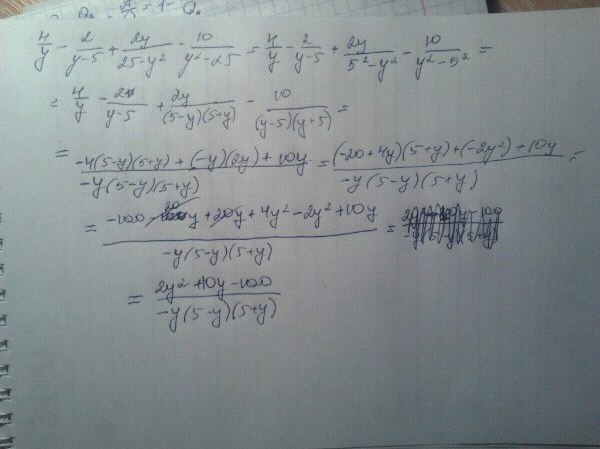 4/y - 2/(y-5) + 2y/(25-y²) - 10/(y²-25) = 4/y - 2/(y-5) + 2y/(5²-y²) - 10/(y²-5²) =
= 4/y - 2/(y-5) + 2y/((5-y)(5+y)) - 10/((y-5)(y+5)) =
= (-4(5-y)(5+y) + (-y)(2y) + 10y)/(-y(5-y)(5+y)) = ((-20+4y)(5+y) + (-2y²) + 10y)/(-y(5-y)(5+y)) =
= (-100 - 20y + 20y + 4y² - 2y² + 10y)/(-y(5-y)(5+y)) =
= (2y² + 10y - 100)/(-y(5-y)(5+y))